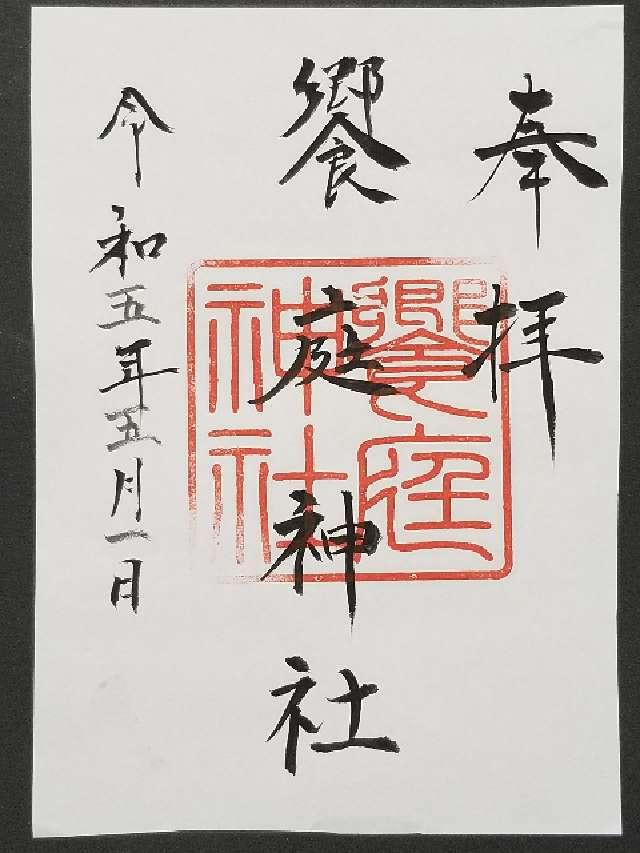 奉拝
饗庭神社
饗庭神社
令和五年五月一日